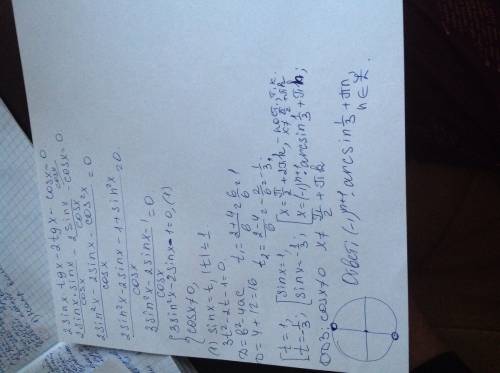 2sinx·tgx - 2tgx - cosx = 0
2sinx·sinx/cosx - 2sinx/cosx - cosx = 0
(2sin²x - 2sinx - cos²x)/cosx = 0
(2sin²x - 2sinx - 1 + sin²x)/cosx = 0
(3sin²x - 2sinx - 1)/cosx = 0
{3sin²x - 2sinx - 1 = 0, (1)
{cosx ≠ 0,
(1) sinx = t, |t| ≤ 1
3t² - 2t - 1 = 0
D = b² - 4ac
D = 4 + 12 = 16
t₁ = (2+4)/6 = 6/6 = 1
t₂ = (2-4)/6 = -2/6 = -1/3.
[t = 1, [sinx = 1, [x = π/2 + 2πk, - пост., т.к. x ≠ π/2 + πk
[t = -1/3; [sinx = -1/3; [x = (-1)ⁿ⁺¹ arcsin 1/3 + πn;
ОДЗ: cosx ≠ 0 x ≠ π/2 + πk
Ответ: (-1)ⁿ⁺¹ arcsin 1/3 + πn,
n ∈ Z.